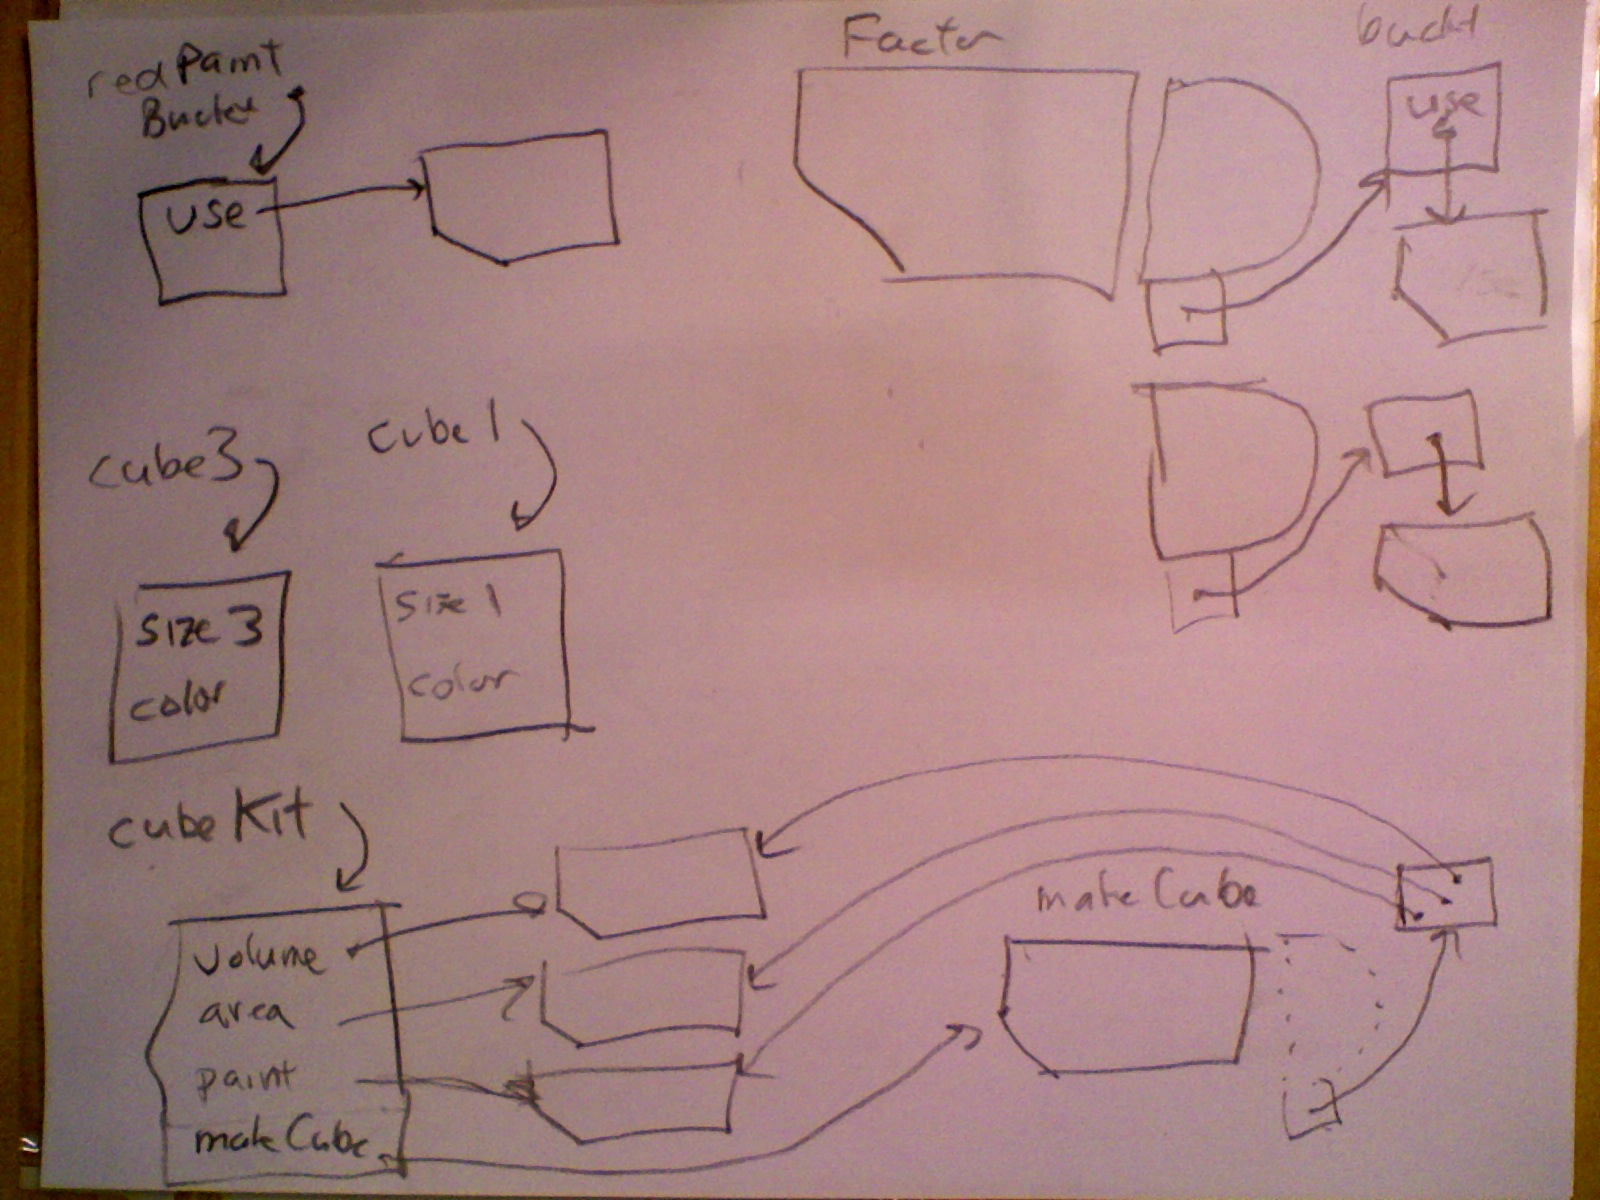 red Paint
Bucket
use
Factor
buckt
use
cube3
cube1
size 3
color
size 1
color
cubeKit
volume
area
paint
makeCube
makeCube